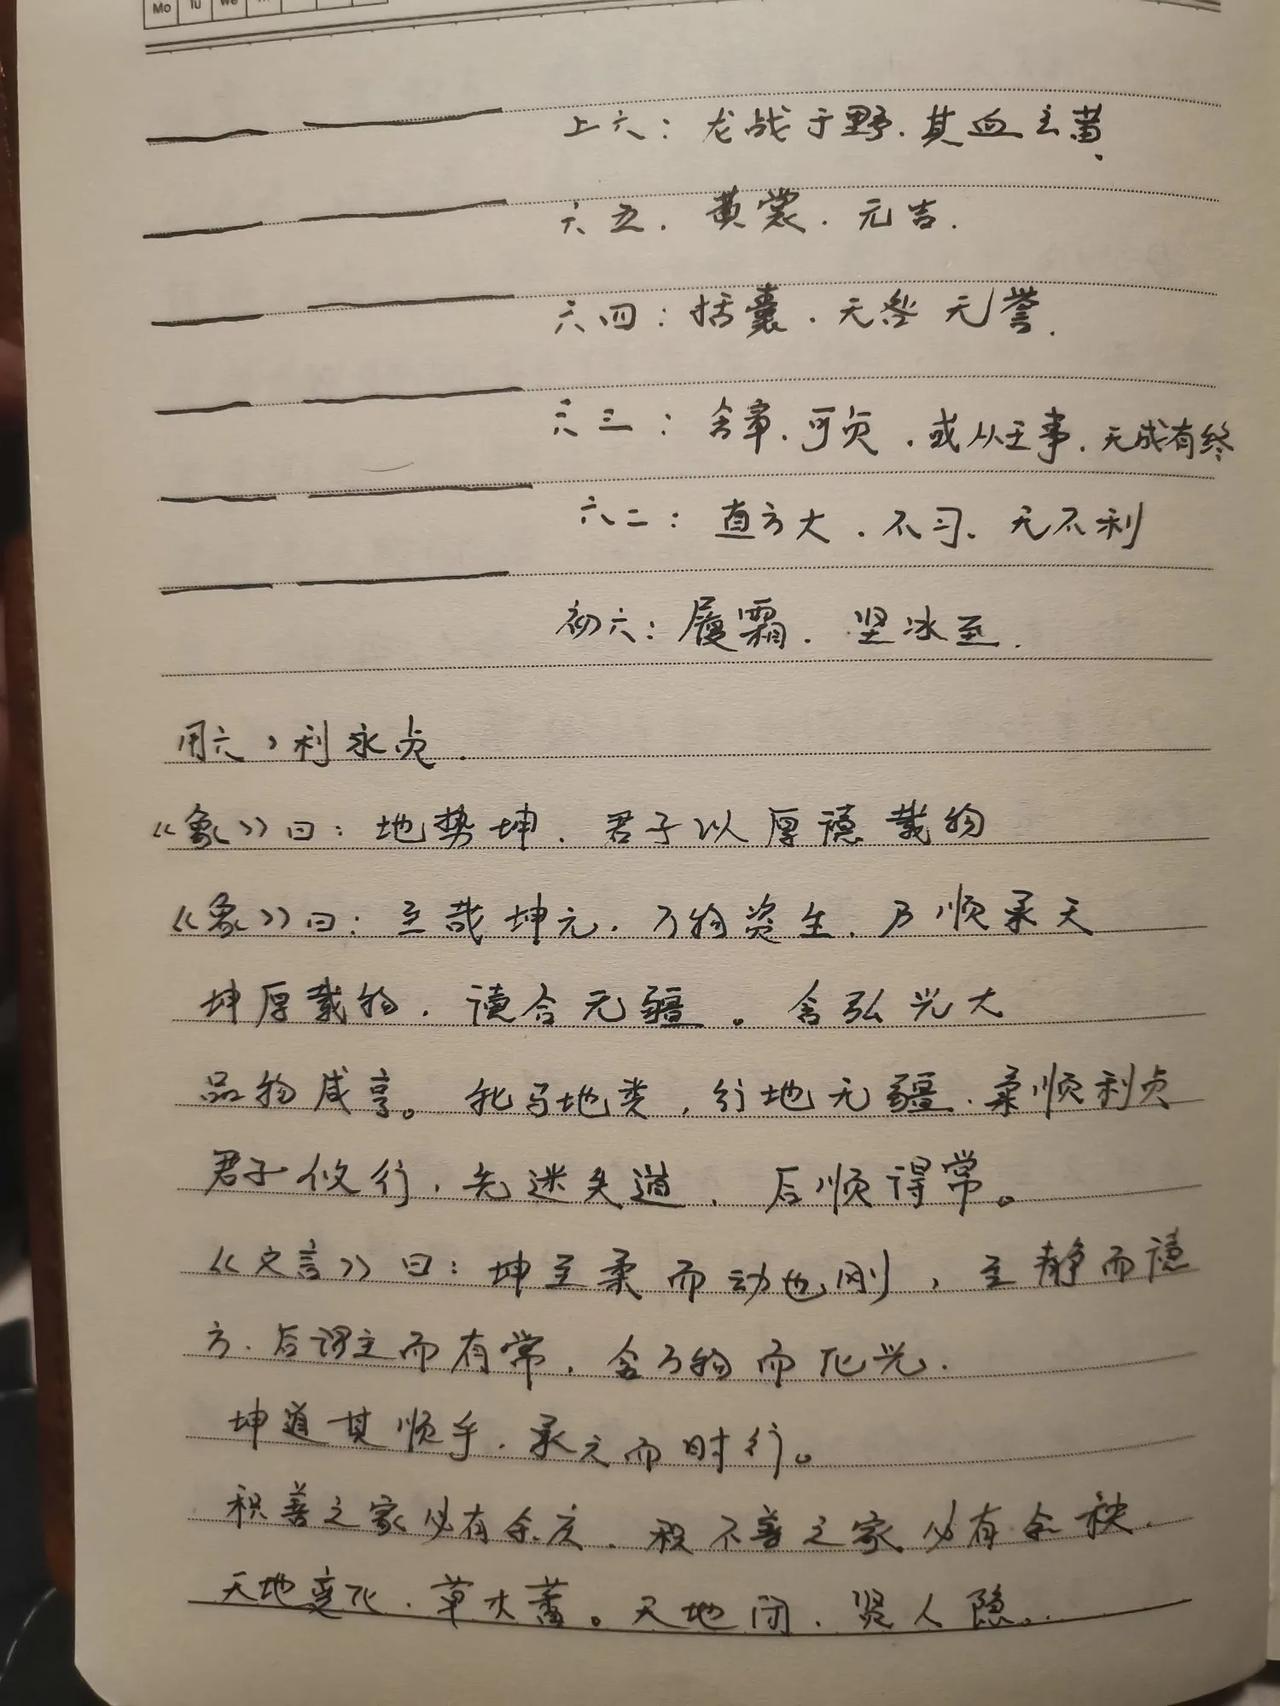 Mo Tu We
上六：龙战于野．其血玄黄．
六五．黄裳．元吉．
六四：括囊．无咎 无誉．
六三：含章．可贞．或从王事．无成有终
六二：直方大．不习．无不利
初六：履霜．坚冰至．
用六，利永贞．
《象》曰：地势坤．君子以厚德载物
《彖》曰：至哉坤元．万物资生．乃顺承天
坤厚载物．德合无疆。含弘光大
品物咸亨。牝马地类，行地无疆．柔顺利贞
君子攸行，先迷失道．后顺得常。
《文言》曰：坤至柔而动也刚，至静而德
方．后得主而有常．含万物而化光．
坤道其顺乎．承天而时行。
积善之家必有余庆．积不善之家必有余殃．
天地变化．草木蕃。天地闭．贤人隐．